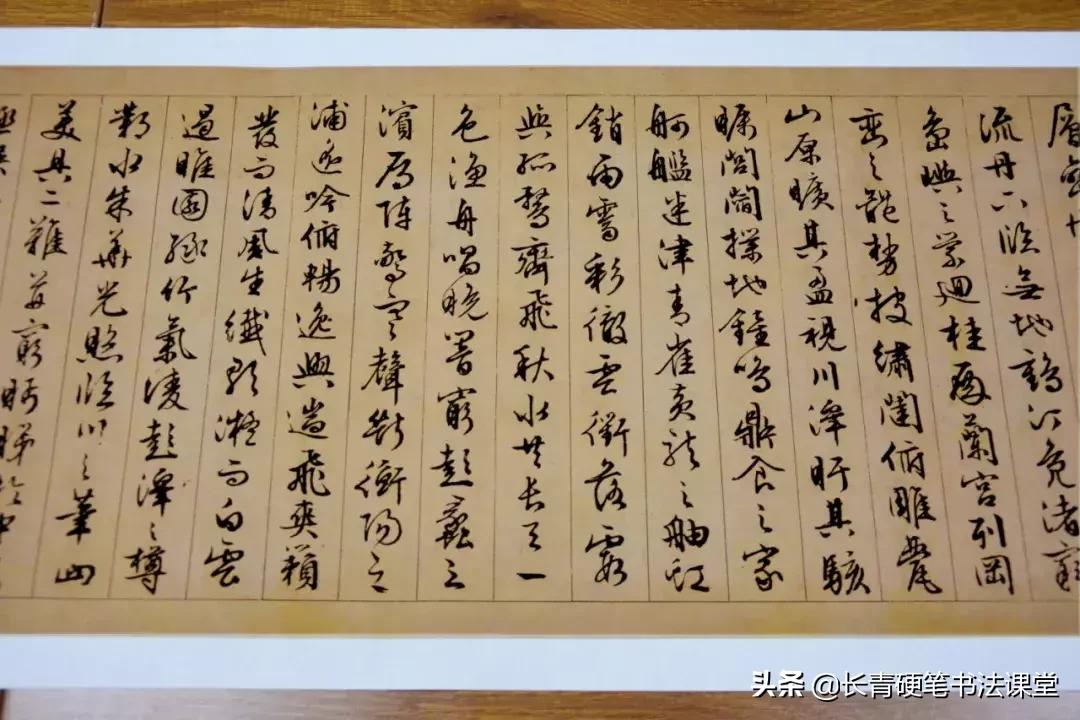 層巒
流丹下臨無地鶴汀鳧渚窮
島嶼之縈迴桂殿蘭宮列岡
巒之體勢披繡闥俯雕甍
山原曠其盈視川澤盱其駭
矚閭閻撲地鐘鳴鼎食之家
舸艦迷津青雀黃龍之舳虹
銷雨霽彩徹雲衢落霞
與孤鶩齊飛秋水共長天一
色漁舟唱晚響窮彭蠡之
濱雁陣驚寒聲斷衡陽之
浦遙吟俯暢逸興遄飛爽籟
發而清風生纖歌凝而白雲
遏睢園綠竹氣凌彭澤之樽
鄴水朱華光照臨川之筆四
美具二難并窮眄睇於中
头条 @长青硬笔书法课堂